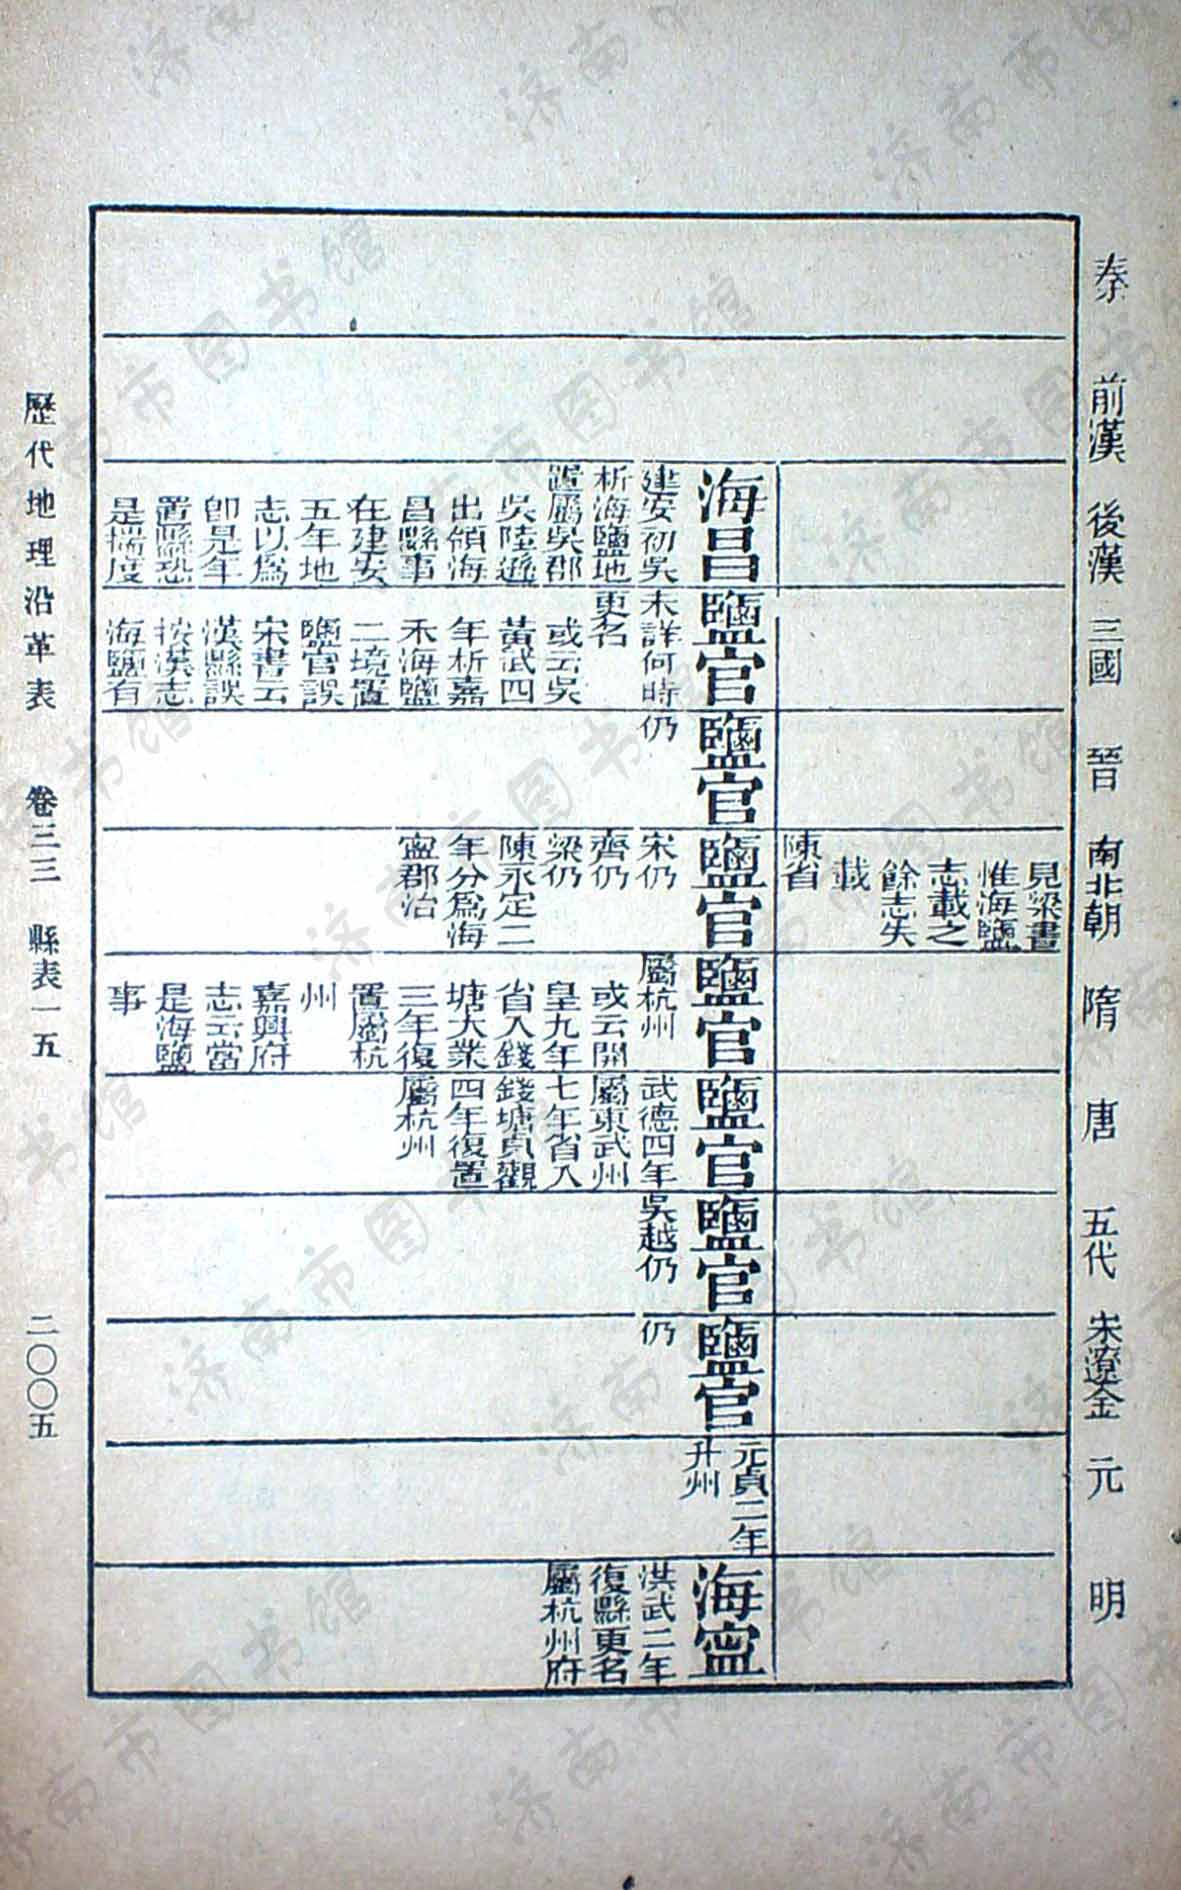 秦 前漢 後漢 三國 晉 南北朝 隋 唐 五代 宋遼金 元 明
見梁書
惟海鹽
志載之
餘志失
載
陳省
海昌
建安初吳
析海鹽地
置屬吳郡
吳陸遜
出領海
昌縣事
在建安
五年地
志以爲
卽是年
置縣恐
是揣度
鹽官
未詳何時
更名
或云吳
黃武四
年析嘉
禾海鹽
二境置
鹽官誤
宋書云
漢縣誤
按漢志
海鹽有
鹽官
仍
鹽官
宋仍
齊仍
梁仍
陳永定二
年分爲海
寧郡治
鹽官
屬杭州
或云開
皇九年
省入錢
塘大業
三年復
置屬杭
州
嘉興府
志云當
是海鹽
事
鹽官
武德四年
屬東武州
七年省入
錢塘貞觀
四年復置
屬杭州
鹽官
吳越仍
鹽官
仍
元貞二年
升州
海寧
洪武二年
復縣更名
屬杭州府
歷代地理沿革表 卷三三 縣表一五 二〇〇五
济南市图书馆